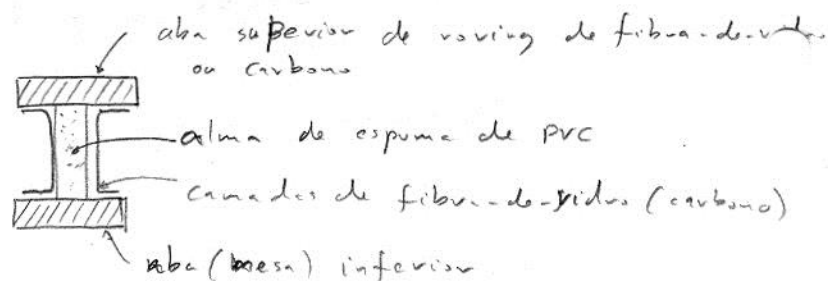 aba superior de roving de fibra-de-vidro
ou carbono
alma de espuma de PVC
camadas de fibra-de-vidro (carbono)
aba (mesa) inferior